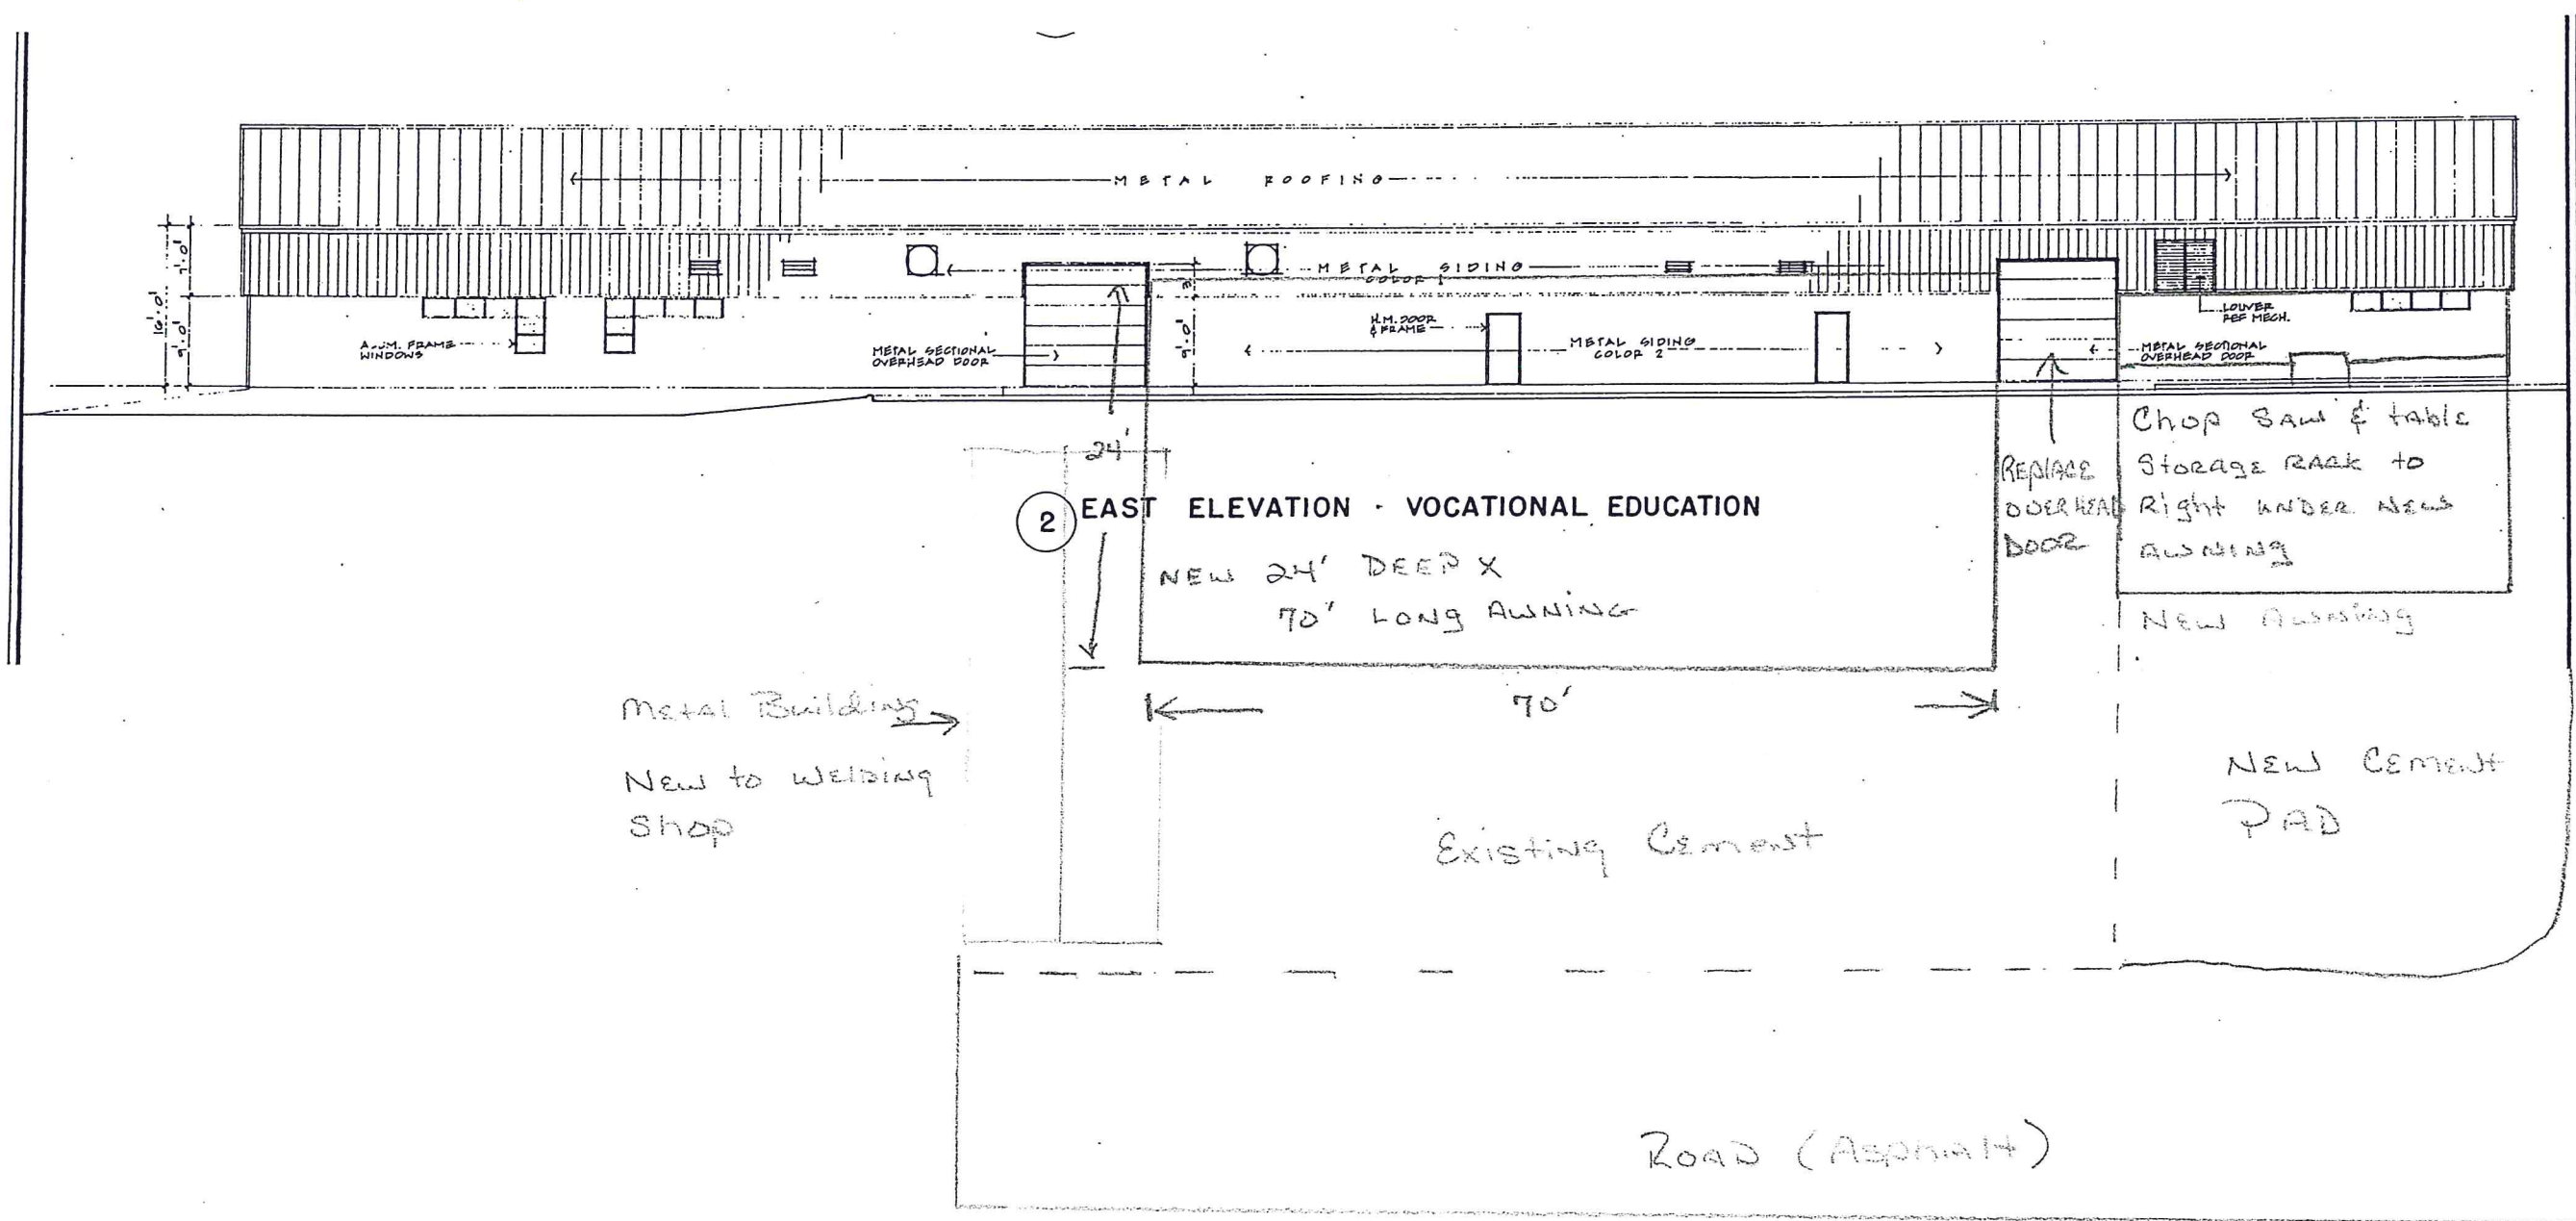 METAL ROOFING
7'-0'
16'-0'
9'-0'
METAL SIDING
COLOR 1
3'
9'-0'
ALUM. FRAME
WINDOWS
METAL SECTIONAL
OVERHEAD DOOR
H.M. DOOR
& FRAME
METAL SIDING
COLOR 2
LOUVER
REF MECH.
METAL SECTIONAL
OVERHEAD DOOR
24'
2 EAST ELEVATION · VOCATIONAL EDUCATION
NEW 24' DEEP X
70' LONG AWNING
REPLACE
OVERHEAD
DOOR
Chop SAW & tABlE
StORAgE RACK to
Right UNDER NEW
AWNINg
NEW AWNINg
70'
MEtAl BuildiNg
NEW to WElDiNg
Shop
ExistiNg CEmENt
NEW CEMENt
PAD
ROAD (ASphAlt)